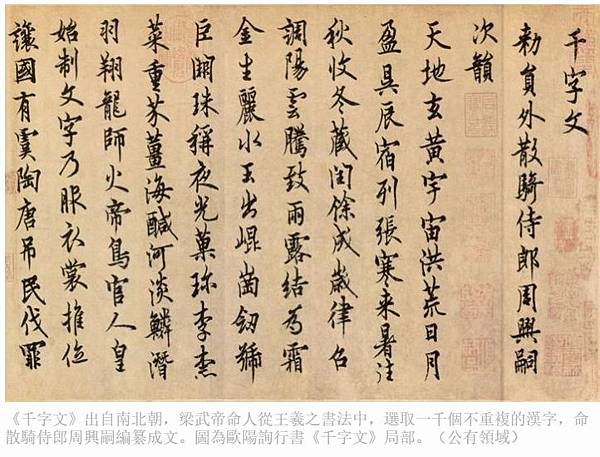 千字文
勑員外散騎侍郎周興嗣
次韻
天地玄黃宇宙洪荒日月
盈昃辰宿列張寒来暑往
秋收冬藏閏餘成歲律召
調陽雲騰致雨露結為霜
金生麗水玉出崐崗劒號
巨闕珠稱夜光菓珎李柰
菜重芥薑海醎河淡鱗潛
羽翔龍師火帝鳥官人皇
始制文字乃服衣裳推位
讓國有虞陶唐吊民伐罪
《千字文》出自南北朝，梁武帝命人從王羲之書法中，選取一千個不重複的漢字，命
散騎侍郎周興嗣編纂成文。圖為歐陽詢行書《千字文》局部。（公有領域）